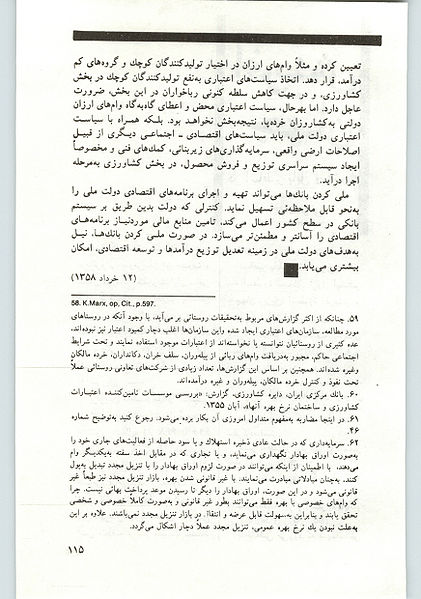 تعیین کرده و مثلاً وام‌های ارزان در اختیار تولیدکنندگان کوچك و گروه‌های کم
درآمد، قرار دهد. اتخاذ سیاست‌های اعتباری به‌نفع تولیدکنندگان کوچك در بخش
کشاورزی، و در جهت کاهش سلطه کنونی رباخواران در این بخش، ضرورت
عاجل دارد. اما بهرحال، سیاست اعتباری محض و اعطای گاه‌به‌گاه وام‌های ارزان
دولتی به‌کشاورزان خرده‌پا، نتیجه‌بخش نخواهد بود. بلکه همراه با سیاست
اعتباری دولت ملی، باید سیاست‌های اقتصادی ـ اجتماعی دیگری از قبیل
اصلاحات ارضی واقعی، سرمایه‌گذاری‌های زیربنائی، کمك‌های فنی و مخصوصاً
ایجاد سیستم سراسری توزیع و فروش محصول، در بخش کشاورزی به‌مرحله
اجرا درآید.
ملی کردن بانك‌ها می‌تواند تهیه و اجرای برنامه‌های اقتصادی دولت ملی را
به‌نحو قابل ملاحظه‌ئی تسهیل نماید. کنترلی که دولت بدین طریق بر سیستم
بانکی در سطح کشور اعمال می‌کند، تامین منابع مالی موردنیاز برنامه‌های
اقتصادی را آسانتر و مطمئن‌تر می‌سازد. در صورت ملی کردن بانك‌ها، نیل
به‌هدف‌های دولت ملی در زمینه تعدیل توزیع درآمدها و توسعه اقتصادی، امکان
بیشتری می‌یابد.
(۱۲ خرداد ۱۳۵۸)
58. K.Marx, op, Cit., p.597.
۵۹. چنانکه از اکثر گزارش‌های مربوط به‌تحقیقات روستائی بر می‌آید، با وجود آنکه در روستاهای
مورد مطالعه، سازمان‌های اعتباری ایجاد شده واین سازمان‌ها اغلب دچار کمبود اعتبار نیز نبوده‌اند،
عده کثیری از روستائیان نتوانسته یا نخواسته‌اند از اعتبارات موجود استفاده نمایند و تحت شرایط
اجتماعی حاکم، مجبور به‌دریافت وام‌های ربائی از پیله‌وران، سلف خران، دکانداران، خرده مالکان
وغیره شده‌اند. همچنین بر اساس این گزارش‌ها، تعداد زیادی از شرکت‌های تعاونی روستائی عملاً
تحت نفوذ و کنترل خرده مالکان، پیله‌وران و غیره درآمده‌اند.
۶۰. بانك مرکزی ایران، دایره کشاورزی، گزارش: «بررسی موسسات تامین‌کننده اعتبارات
کشاورزی و ساختمان نرخ بهره آنها»، آبان ۱۳۵۵.
۶۱. در اینجا مضاربه به‌مفهوم متداول امروزی آن بکار برده می‌شود. رجوع کنید به‌توضیح شماره
۴۶.
۶۲. سرمایه‌داری که در حالت عادی ذخیره استهلاك و یا سود حاصله از فعالیت‌های جاری خود را
به‌صورت اوراق بهادار نگهداری می‌نماید، و یا تجاری که در مقابل اخذ سفته به‌یکدیگر وام
می‌دهند، با اطمینان از اینکه می‌توانند در صورت لزوم اوراق بهادار را با تنزیل مجدد تبدیل به‌پول
کنند، به‌چنان مبادلاتی مبادرت می‌نمایند. با غیر قانونی شدن بهره، بازار تنزیل مجدد نیز طبعاً غیر
قانونی می‌شود و در این صورت، اوراق بهادار را دیگر تا رسیدن موعد پرداخت بهائی نیست. چرا
که وام‌های خصوصی با بهره فقط می‌توانند بطور غیر قانونی و به‌صورت کاملاً خصوصی و شخصی
تحقق یابند و بنابراین به‌سهولت قابل عرضه و انتقال در بازار تنزیل مجدد نمی‌باشند. علاوه بر این
به‌علت نبودن یك نرخ بهره عمومی، تنزیل مجدد عملاً دچار اشکال می‌گردد.
۱۱۵